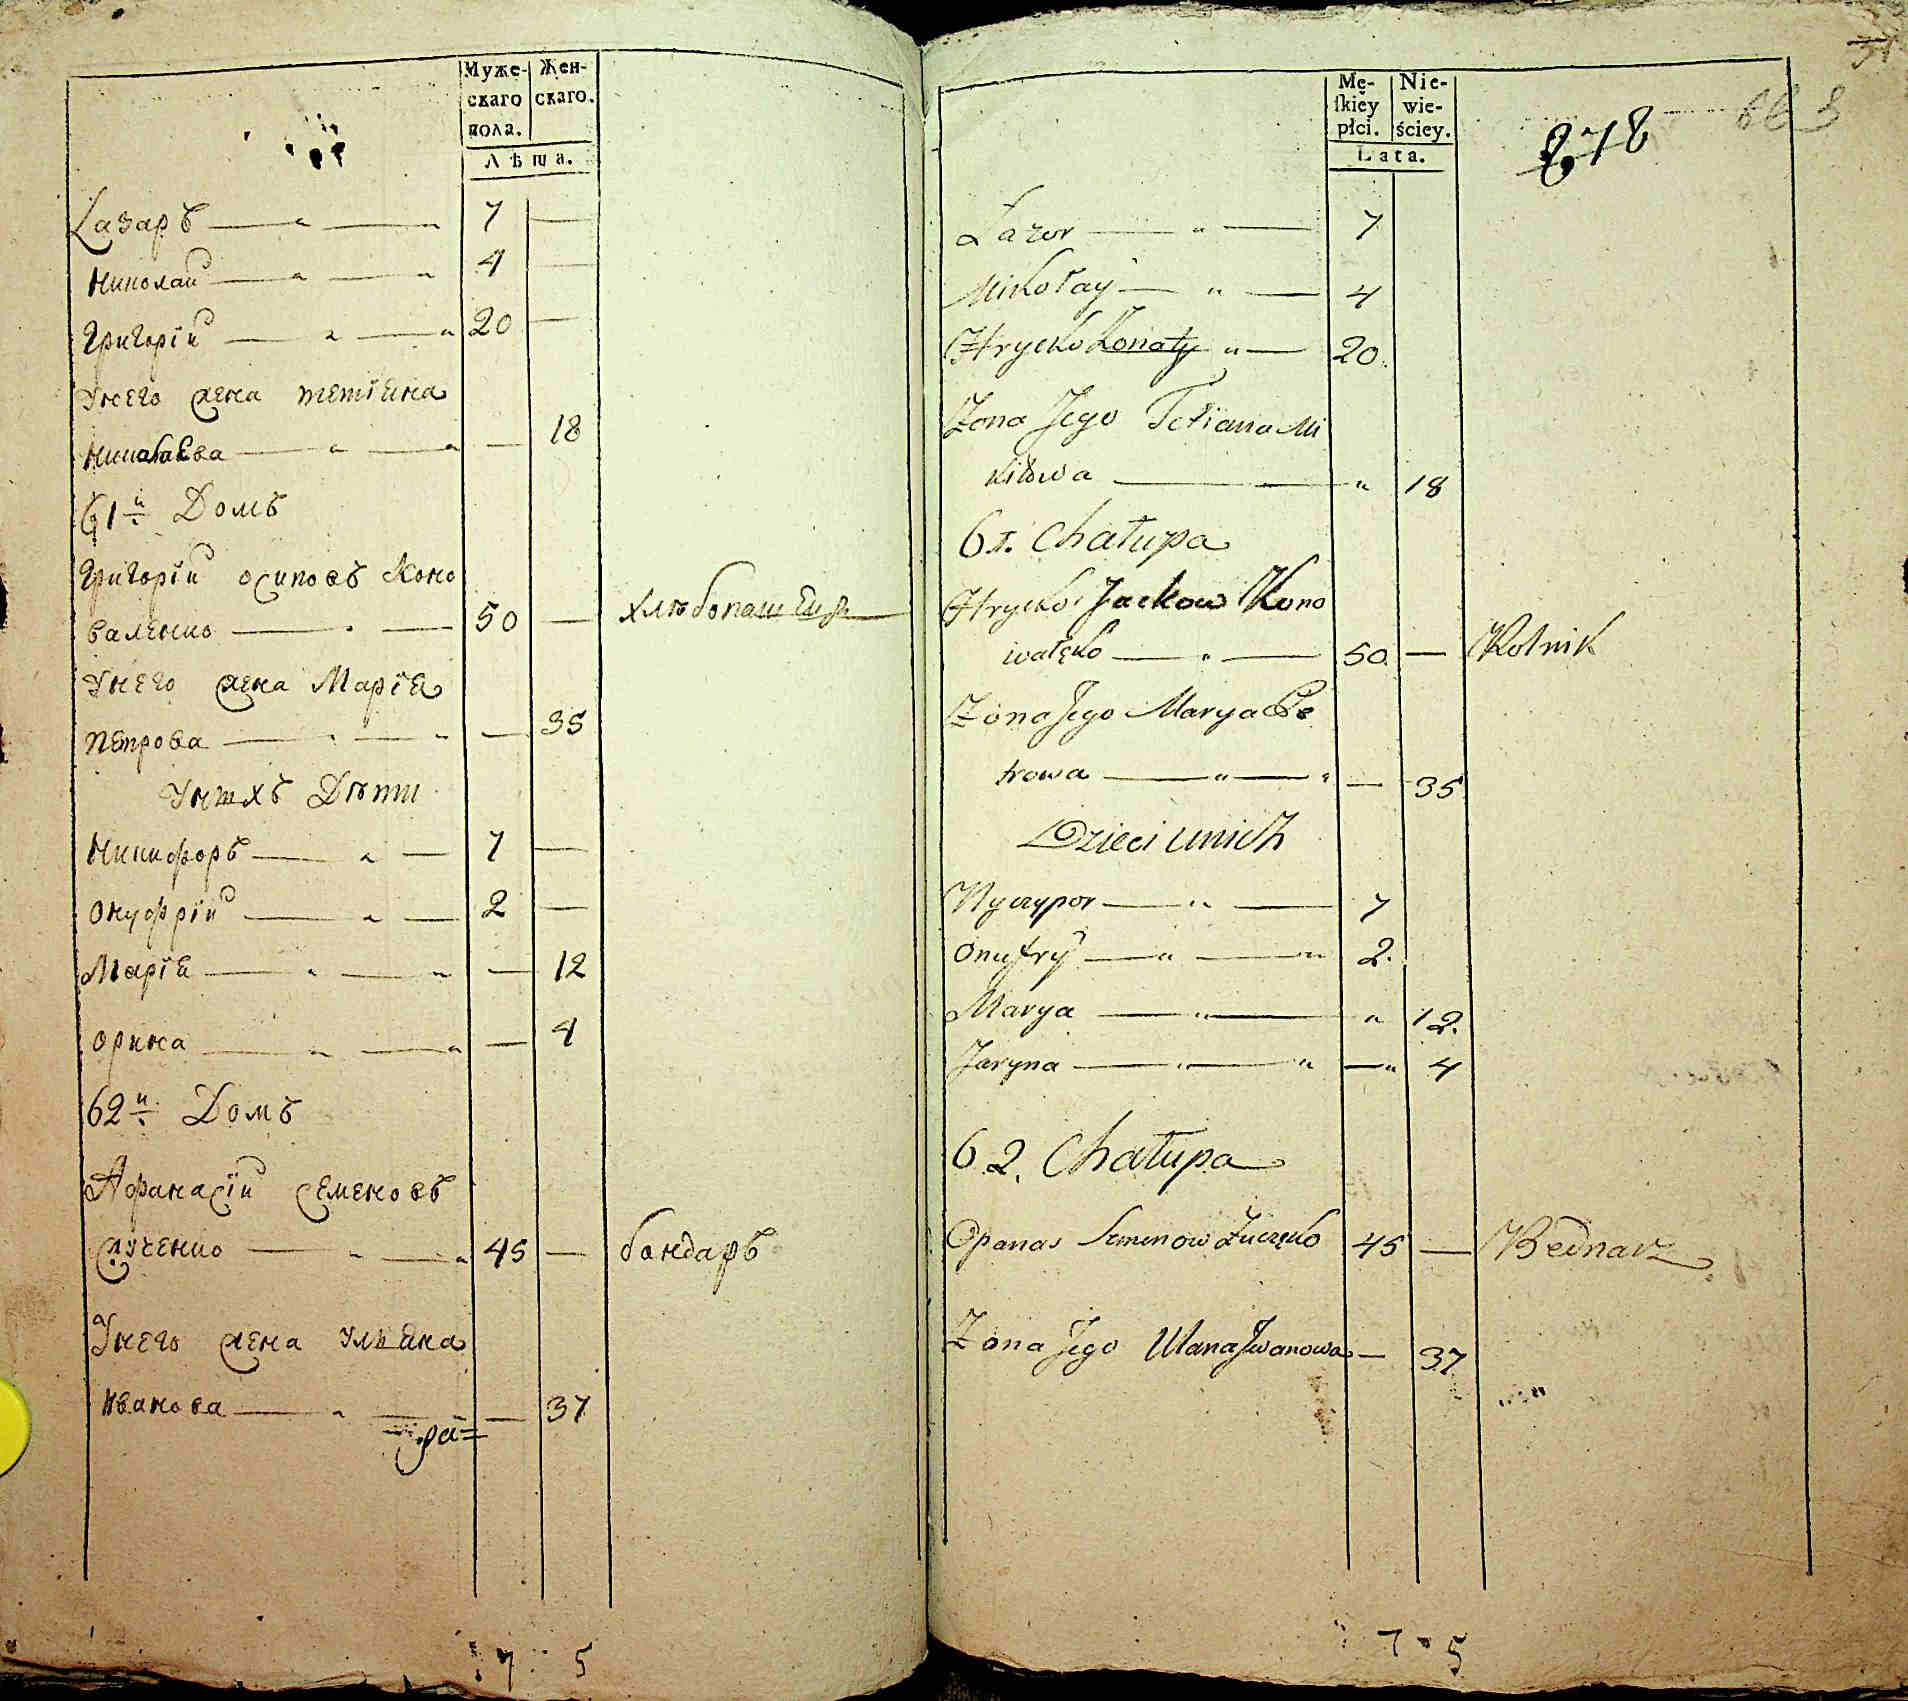 Муже-
скаго
пола.
Жен-
скаго.
Лѣта.
Лазаръ 7
Николай 4
Григорій 20
У него жена Тетіяна
18
61й Домъ
Григорій Осиповъ Коно
валенко 50 хлѣбопашецъ
У него жена Марія
Петрова 35
У нихъ Дѣти
Никифоръ 7
Онуфрій 2
Марія 12
Орина 4
62й Домъ
Афанасій Семеновъ
Лученко 45 бондаръ
У него жена Ульяна
Иванова 37
7 5
Mę-
ſkiéy
płci.
Nie-
wie-
ściey.
Lata.
278
663
Łazor 7
Mikołay 4
Hrycko Żonaty 20
Żona Jego Tetiana Mi
kitowa 18
61. Chałupa
Hrycko Jackow Kono
wałęko 50 Rolnik
Żona Jego Marya Pe
trowa 35
Dzieci u nich
Nyczypor 7
Onufry 2.
Marya 12.
Jaryna 4
62. Chałupa
Opanas Semenow Łuczęko 45 Bednarz
Żona Jego Ulana Jwanowa 37
7 5